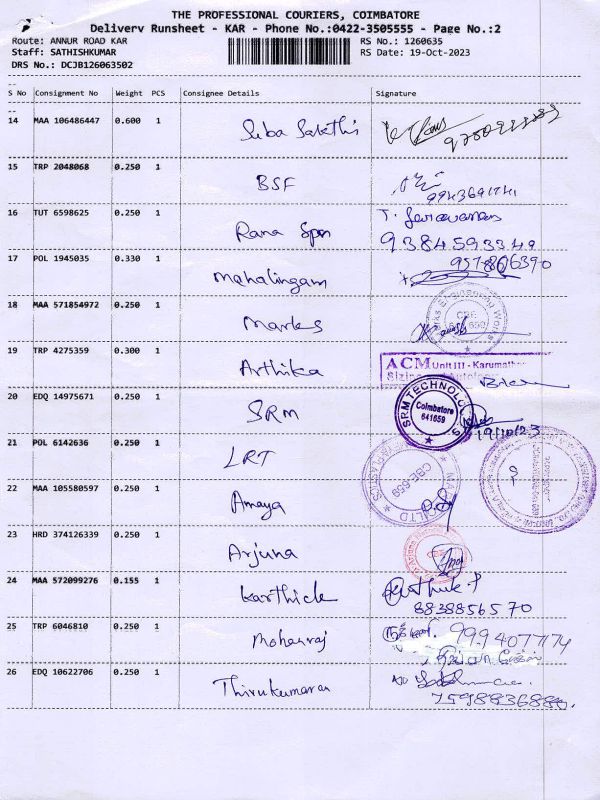 THE PROFESSIONAL COURIERS, COIMBATORE
Delivery Runsheet - KAR - Phone No.:0422-3505555 - Page No.:2
Route: ANNUR ROAD KAR RS No.: 1260635
Staff: SATHISHKUMAR RS Date: 19-Oct-2023
DRS No.: DCJB126063502
S No Consignment No Weight PCS Consignee Details Signature
14 MAA 106486447 0.600 1 Siba Sakthi
15 TRP 2048068 0.250 1 BSF
9943691741
16 TUT 6598625 0.250 1 Rana Spn T. Saravanan
9384593349
17 POL 1945035 0.330 1 Mahalingam 9578806390
18 MAA 571854972 0.250 1 Marks
CBE
641 659
19 TRP 4275359 0.300 1 Arthika ACM Unit III - Karumathampatti
20 EDQ 14975671 0.250 1 SRM SRM TECHNOLOGIES Coimbatore 641659
19/10/23
21 POL 6142636 0.250 1 LRT
CBE 659
22 MAA 105580597 0.250 1 Amaya
23 HRD 374126339 0.250 1 Arjuna
24 MAA 572099276 0.155 1 Karthick Karthik P
8838856570
25 TRP 6046810 0.250 1 Mohanraj 9994077174
26 EDQ 10622706 0.250 1 Thirukumaran
7598836880